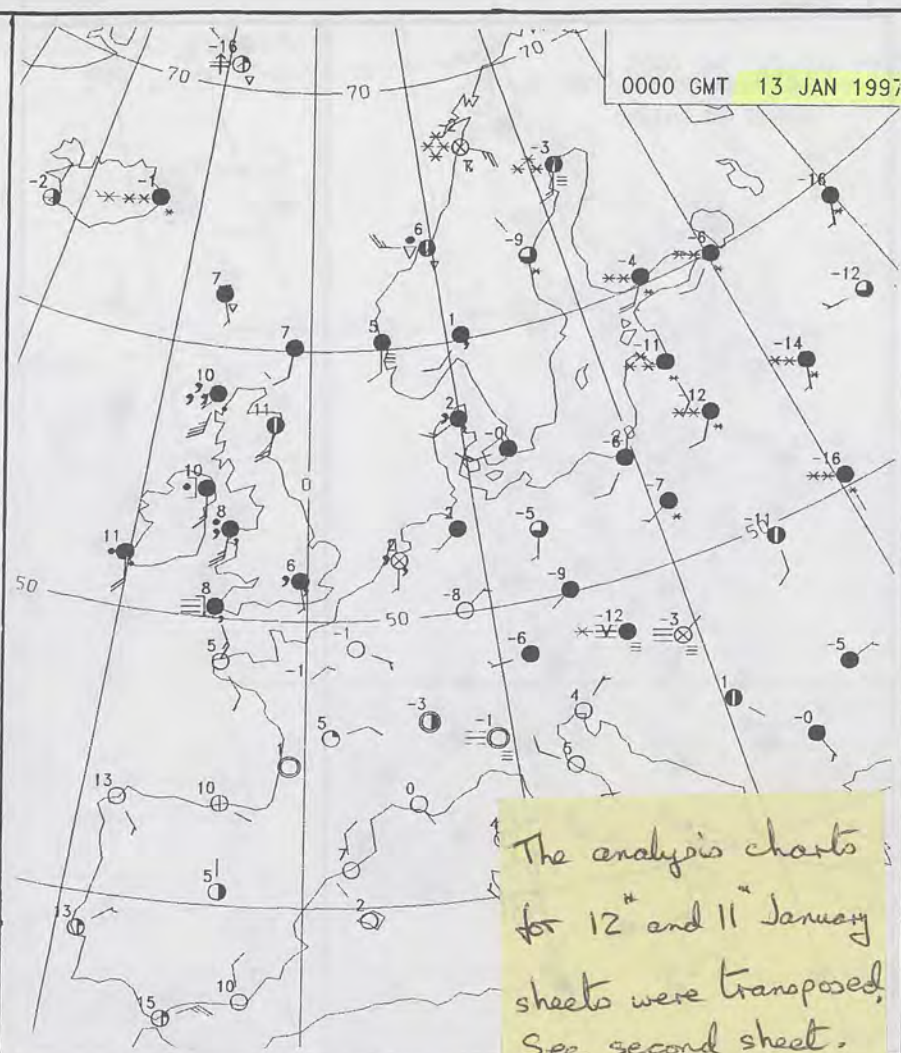 0000 GMT 13 JAN 1997
-16
70
70
70
-2
-3
-2
-1
-16
6
-9
-6
-4
-12
7
7
5
1
-11
-14
10
11
2
-0
-12
-6
-16
10
0
-7
8
-5
-11
50
11
2
6
-9
50
8
50
-8
-12
-3
5
-1
-6
-5
-1
4
1
5
-3
-1
-0
1
5
13
10
0
7
4
5
13
2
15
10
The analysis charts
for 12th and 11th January
sheets were transposed.
See second sheet.